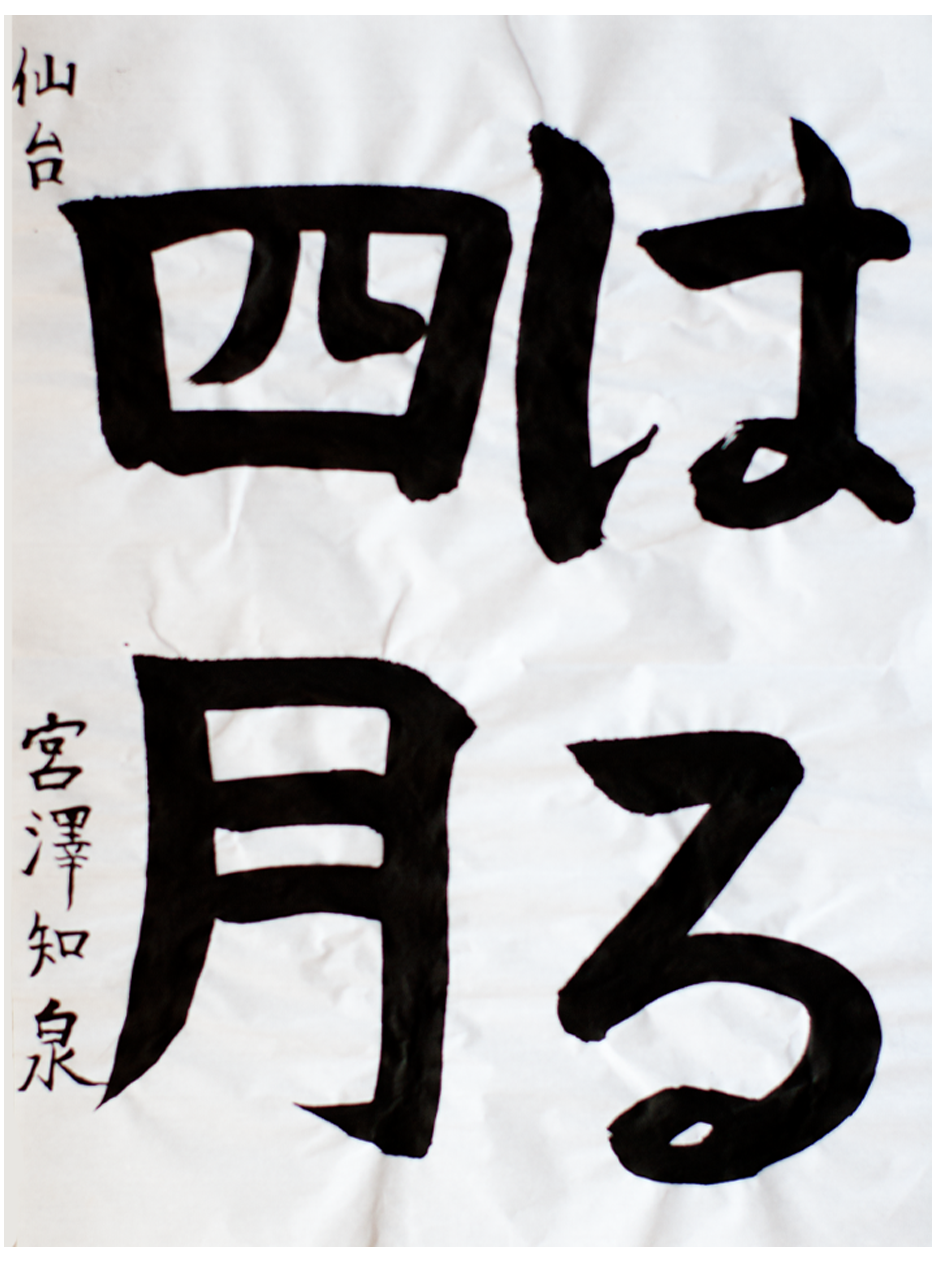 はる
四月
仙台 宮澤知泉